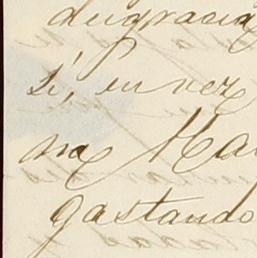 desgracia
si, en vez
na Ma
gastando